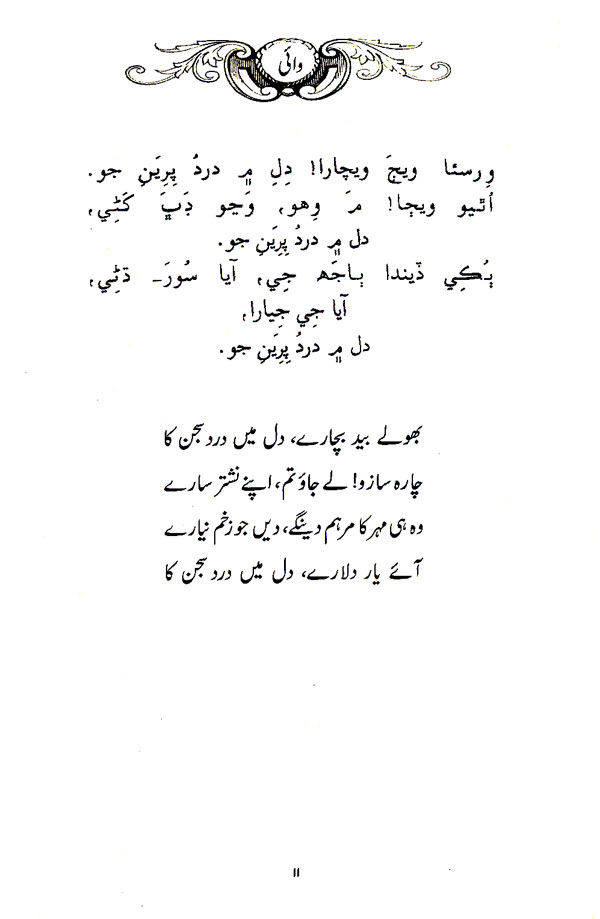 وائي
وِرسئا ويڄَ ويچارا! دِلِ ۾ دردُ پِرِيَنِ جو.
اُٿيو ويڄا! مَ وِهو، وَڃو ڊَٻَ کَڻِي،
دل ۾ دردُ پِرِيَنِ جو.
ٻُڪِي ڏيندا ٻاجَهہ جِي، آيا سُورَـ ڌڻِي،
آيا جِي جِيارا،
دل ۾ دردُ پِرِيَنِ جو.
بھولے بید بچارے، دل میں درد سجن کا
چارہ سازو! لے جاؤ تم، اپنے نشتر سارے
وہ ہی مہر کا مرہم دینگے، دیں جو زخم نیارے
آئے یار دلارے، دل میں درد سجن کا
۱۱